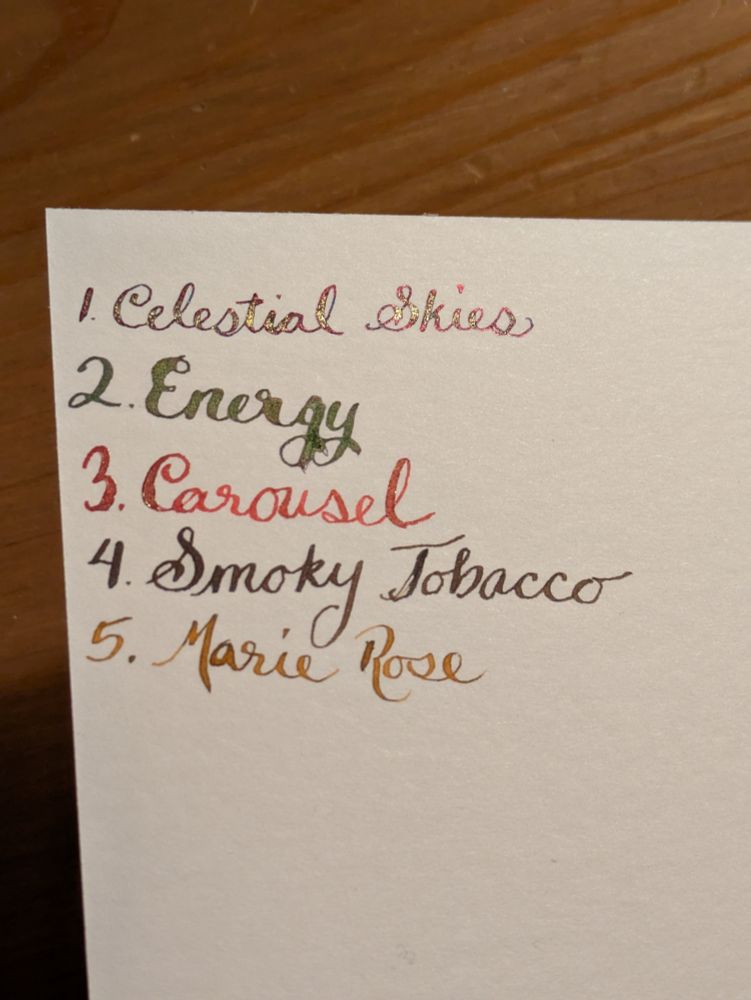 1. Celestial Skies
2. Energy
3. Carousel
4. Smoky Tobacco
5. Marie Rose